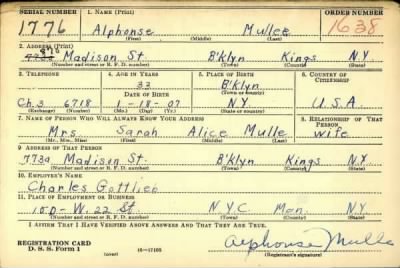 SERIAL NUMBER 1. NAME (Print) ORDER NUMBER
1776 Alphonse Mullee 1638
(First) (Middle) (Last)
2. ADDRESS (Print)
Madison St. B'klyn Kings N.Y.
(Number and street or R. F. D. number) (Town) (County) (State)
3. TELEPHONE 4. AGE IN YEARS 5. PLACE OF BIRTH 6. COUNTRY OF CITIZENSHIP
33 B'klyn
DATE OF BIRTH (Town or county)
Ch. 3 6718 1-18-07 N.Y. U.S.A.
(Exchange) (Number) (Mo.) (Day) (Yr.) (State or country)
7. NAME OF PERSON WHO WILL ALWAYS KNOW YOUR ADDRESS 8. RELATIONSHIP OF THAT PERSON
Mrs. Sarah Alice Mulle wife
(Mr., Mrs., Miss) (First) (Middle) (Last)
9. ADDRESS OF THAT PERSON
773a Madison St. B'klyn Kings N.Y.
(Number and street or R. F. D. number) (Town) (County) (State)
10. EMPLOYER'S NAME
Charles Gottlieb
11. PLACE OF EMPLOYMENT OR BUSINESS
100 - W. 22 St. N.Y.C. Man. N.Y.
(Number and street or R. F. D. number) (Town) (County) (State)
I AFFIRM THAT I HAVE VERIFIED ABOVE ANSWERS AND THAT THEY ARE TRUE.
REGISTRATION CARD
D. S. S. Form 1 (over) 16-17105 Alphonse Mulle
(Registrant's signature)